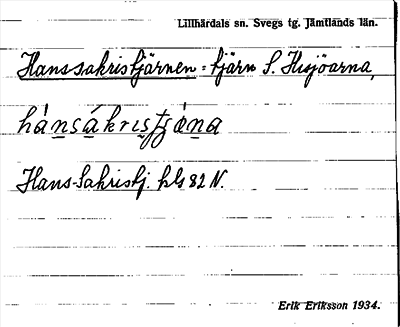 Lillhärdals sn. Svegs tg. Jämtlands län.
Hanssakristjärnen = tjärn S. Husjöarna,
Hans-Sakristj. kbl 82 N.
Erik Eriksson 1934.